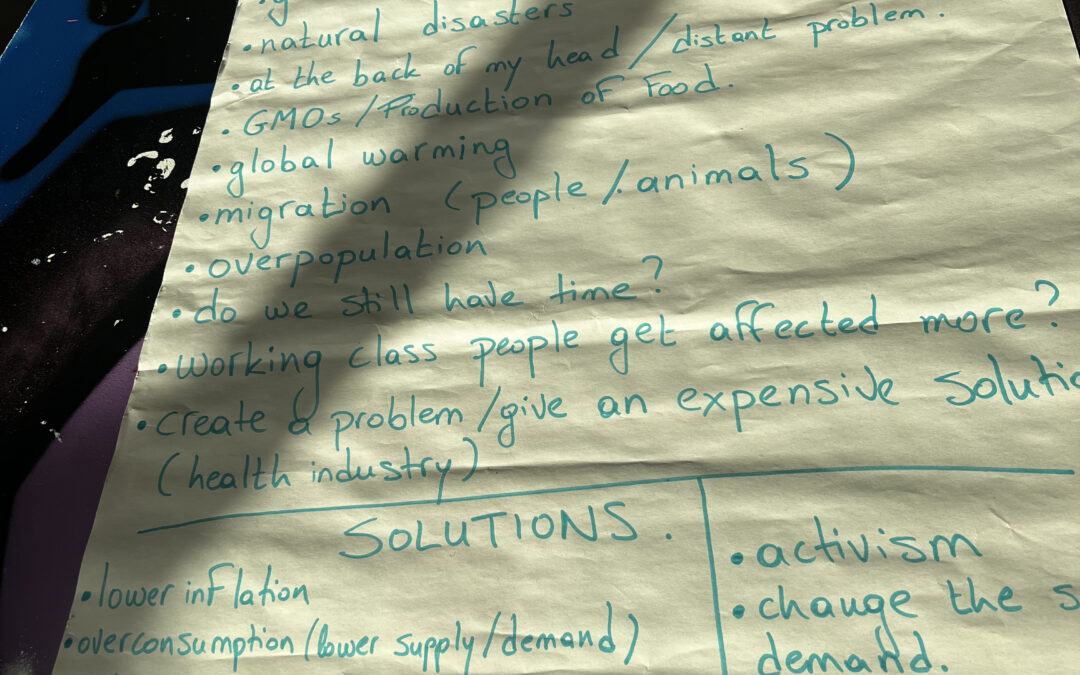 • natural disasters
• at the back of my head / distant problem.
• GMOs / Production of Food.
• global warming
• migration (people / animals)
• overpopulation
• do we still have time?
• working class people get affected more?
• create a problem / give an expensive
(health industry)
SOLUTIONS.
• lower inflation
• overconsumption (lower supply / demand)
• activism
• change the
demand.